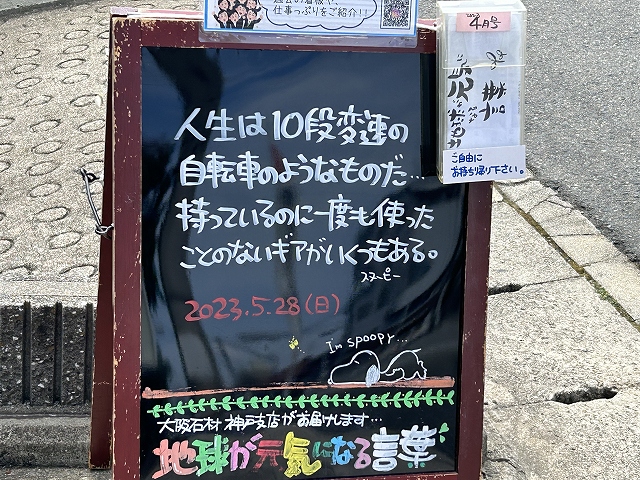 仕事っぷりをご紹介!!
4月号
ご自由に
お持ち帰り下さい。
人生は10段変速の
自転車のようなものだ…
持っているのに一度も使った
ことのないギアがいくつもある。
スヌーピー
2023.5.28(日)
I'm SPOOPY...
大阪石材 神戸支店がお届けします…
地球が元気になる言葉